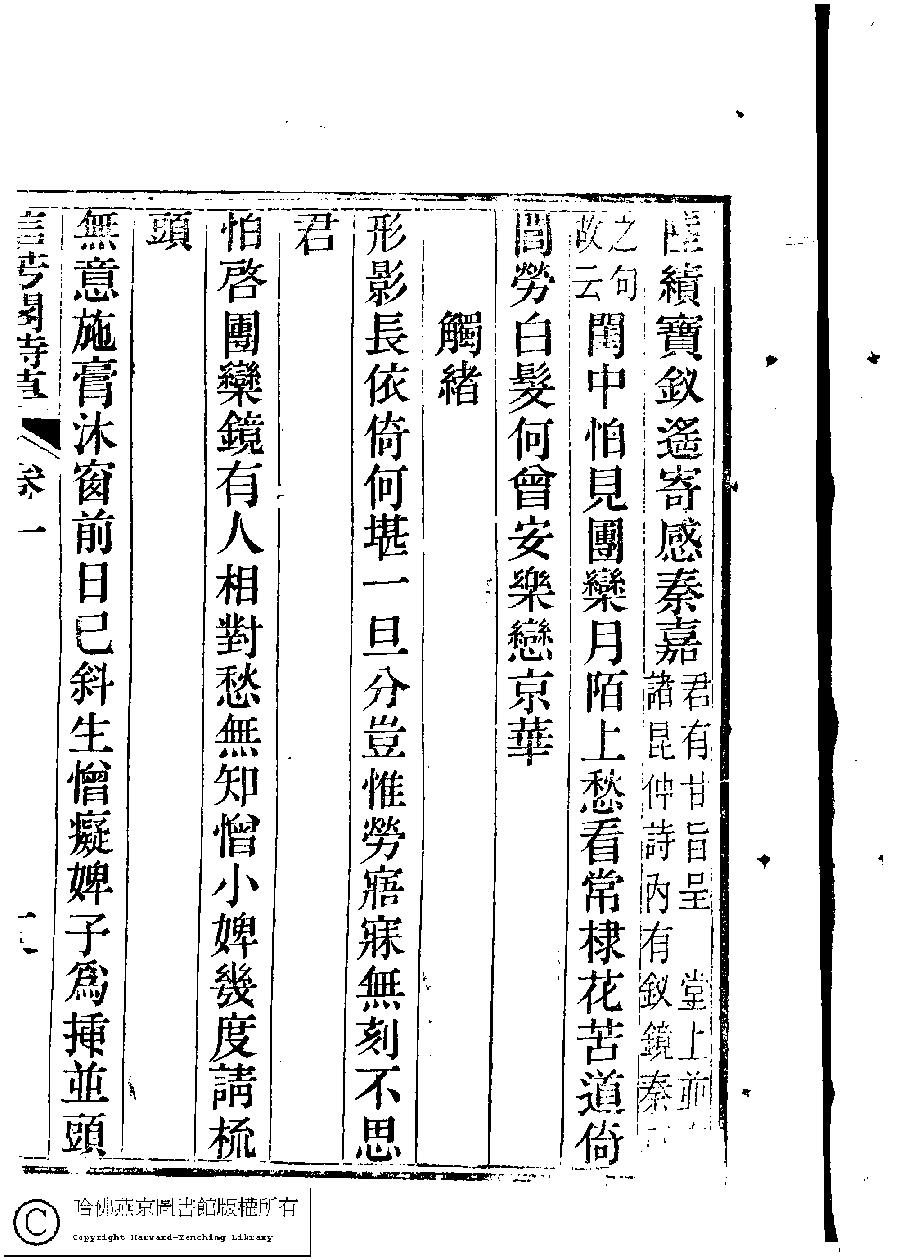 績寶釵遙寄感秦嘉君有甘旨呈 堂上並
諸昆仲詩內有釵鏡秦
之句
故云閨中怕見團欒月陌上愁看常棣花苦道倚
閭勞白髮何曾安樂戀京華
觸緒
形影長依倚何堪一旦分豈惟勞寤寐無刻不思
君
怕啓團欒鏡有人相對愁無知憎小婢幾度請梳
頭
無意施膏沐窗前日已斜生憎癡婢子為揷並頭
卷一
哈佛燕京圖書館版權所有
Copyright Harvard-Yenching Library